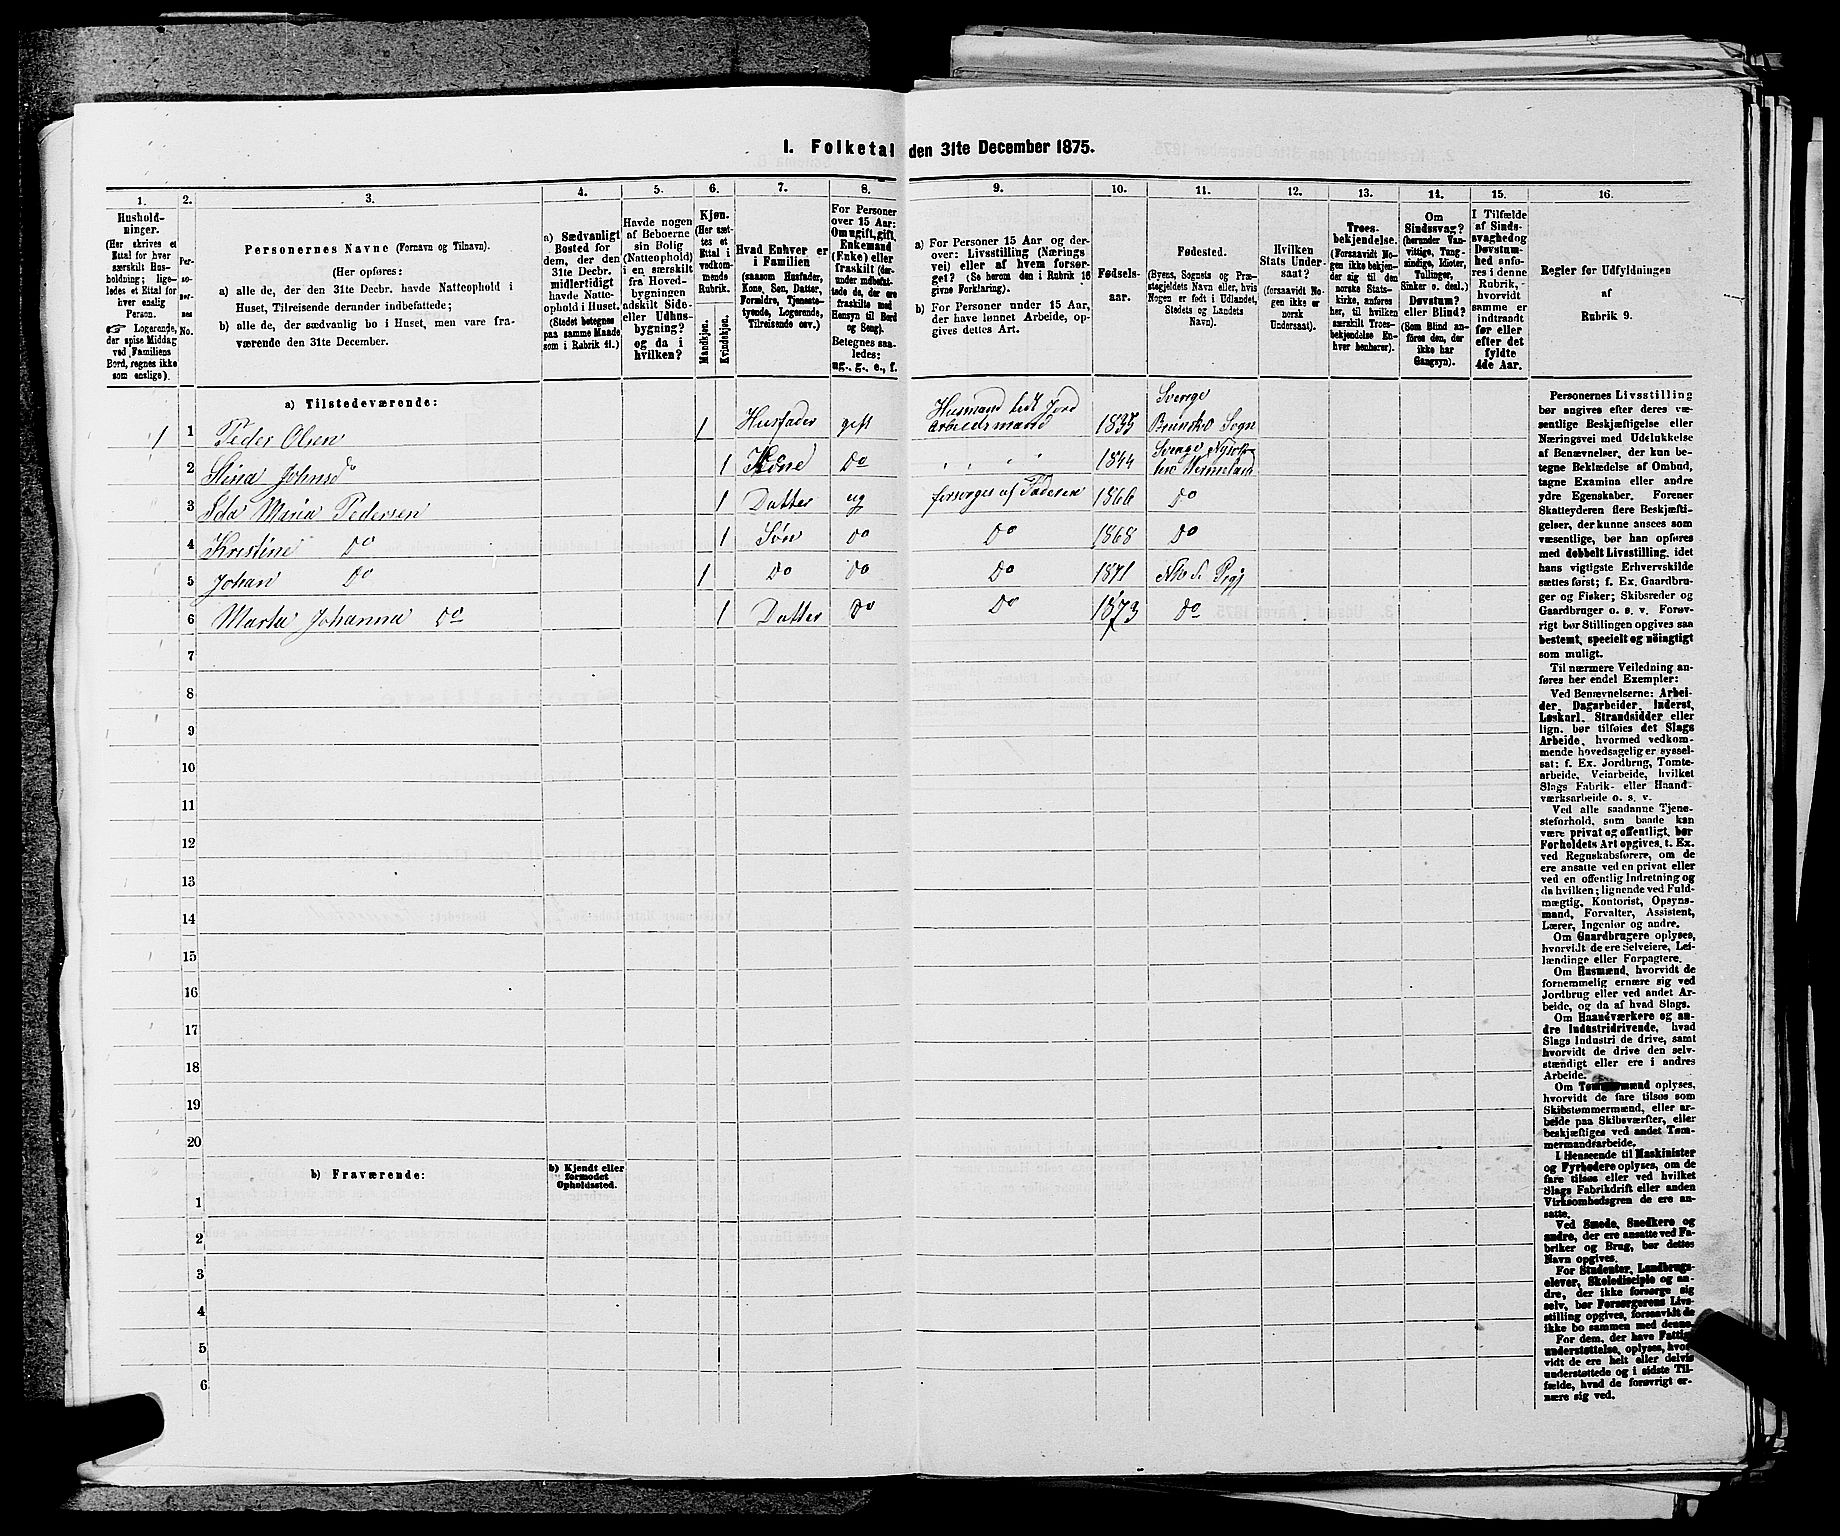 I. Folketal den 31te December 1875.
1. 2. 3. 4. 5. 6. 7. 8. 9. 10. 11. 12. 13. 14. 15. 16.
Hushold-
ninger.
(Her skrives et
Ettal for hver
særskilt Hus-
holdning; lige-
ledes et Ettal for
hver enslig
Person.
☞ Logerende,
der spise Middag
ved Familiens
Bord, regnes ikke
som enslige).
Per-
so-
ner-
nes
No.
Personernes Navne (Fornavn og Tilnavn).
(Her opføres:
a) alle de, der den 31te Decbr. havde Natteophold i
Huset, Tilreisende derunder indbefattede;
b) alle de, der sædvanlig bo i Huset, men vare fra-
værende den 31te December.
a) Sædvanligt
Bosted for
dem, der den
31te Decbr.
midlertidigt
havde Natte-
ophold i Huset.
(Stedet betegnes
paa samme Maade
som i Rubrik 11.)
Havde nogen
af Beboerne
sin Bolig
(Natteophold)
i en særskilt
fra Hoved-
bygningen
adskilt Side-
eller Udhus-
bygning?
og da i
hvilken?
Kjøn.
(Her sæt-
tes et
Ettal i
vedkom-
mende
Rubrik.
Mandkjøn.
Kvindekjøn.
Hvad Enhver er
i Familien
(saasom Husfader,
Kone, Søn, Datter,
Forældre, Tjeneste-
tyende, Logerende,
Tilreisende osv.)
For Personer
over 15 Aar:
Om ugift, gift,
Enkemand
(Enke) eller
fraskilt (der-
under indbefat-
tede de, der ere
fraskilte med
Hensyn til Bord
og Seng).
Betegnes saa-
ledes:
ug., g., e., f.
a) For Personer 15 Aar og der-
over: Livsstilling (Nærings
vei) eller af hvem forsør-
get? (Se herom den i Rubrik 16
givne Forklaring).
b) For Personer under 15 Aar,
der have lønnet Arbeide, op-
gives dettes Art.
Fødsels-
aar.
Fødested.
(Byens, Sognets og Præ-
stegjeldets Navn eller, hvis
Nogen er født i Udlandet,
Stedets og Landets
Navn).
Hvilken
Stats Under-
saat?
(forsaavidt No-
gen ikke er
norsk
Undersaat).
Troes-
bekjendelse.
(Forsaavidt No-
gen ikke bekjen-
der sig til den
norske Stats-
kirke, anføres
her, til hvilken
særskilt Troes-
bekjendelse En-
hver henhører).
Om
Sindssvag?
(herunder Van-
vittige, Tung-
sindige, Idioter,
Tullinger,
Sinker o. desl.)
Døvstum?
eller Blind?
(Som Blind an-
føres den, der
ikke har
Gangsyn).
I Tilfælde
af Sinds-
svaghed og
Døvstum-
hed anfø-
res i denne
Rubrik,
hvorvidt
samme er
indtraadt
før eller
efter det
fyldte
4de Aar.
Regler før Udfyldningen
af
Rubrik 9.
a) Tilstedeværende:
1 1 Peder Olsen 1 Husfader gift Husmand Arbeidsmand 1835 Sverige Brunsko Sogn
2 Stina Johnsd 1 Kone Do " " " " 1844 Sverge
3 Ida Maria Pedersen 1 Datter ug forsørges af Faderen 1866 Do
4 Kristine Do 1 Søn Do Do 1868 Do
5 Johan Do 1 Do Do Do 1871
6 Marta Johanna Do 1 Datter Do Do 1873 Do
7
8
9
10
11
12
13
14
15
16
17
18
19
20
b) Fraværende:
b) Kjendt eller
formodet
Opholdssted.
1
2
3
4
5
6
Personernes Livsstilling
bør angives efter deres væ-
sentlige Beskjæftigelse eller
Næringsvei med Udelukkelse
af Benævnelser, der kun be-
tegne Beklædelse af Ombud,
tagne Examina eller andre
ydre Egenskaber. Forener
Skatteyderen flere Beskjæfti-
gelser, der kunne ansees som
væsentlige, bør han opføres
med dobbelt Livsstilling, idet
hans vigtigste Erhvervskilde
sættes først; f. Ex. Gaardbru-
ger og Fisker; Skibsreder og
Gaardbruger o. s. v. Forøv-
rigt bør Stillingen opgives saa
bestemt, specielt og nøiagtigt
som muligt.
Til nærmere Veiledning an-
føres her endel Exempler:
Ved Benævnelserne: Arbei-
der, Dagarbeider, Inderst,
Løskarl, Strandsidder eller
lign. bør tilføies det Slags
Arbeide, hvormed vedkom-
mende hovedsagelig er syssel-
sat: f. Ex. Jordbrug, Tomte-
arbeide, Veiarbeide, hvilket
Slags Fabrik- eller Haand-
værksarbeide o. s. v.
Ved alle saadanne Tjene-
steforhold, som baade kan
være privat og offentligt, bør
Forholdets Art opgives, t. Ex.
ved Regnskabsførere, om de
ere ansatte ved en privat eller
ved en offentlig Indretning og
da hvilken; lignende ved Fuld-
mægtig, Kontorist, Opsyns-
mand, Forvalter, Assistent,
Lærer, Ingeniør og andre.
Om Gaardbrugere oplyses,
hvorvidt de ere Selveiere, Lei-
lændinge eller Forpagtere.
Om Husmænd, hvorvidt de
fornemmelig ernære sig ved
Jordbrug eller ved andet Ar-
beide, og da af hvad Slags.
Om Haandværkere og an-
dre Industridrivende, hvad
Slags Industri de drive, samt
hvorvidt de drive den selv-
stændigt eller ere i andres
Arbeide.
Om Tømmermænd oplyses,
hvorvidt de fare tilsøs som
Skibstømmermænd, eller ar-
beide paa Skibsværfter, eller
beskjæftiges ved andet Tøm-
mermandsarbeide.
I Henseende til Maskinister
og Fyrbødere oplyses, om de
fare tilsøs eller ved hvilket
Slags Fabrikdrift eller anden
Virksomhedsgren de ere an-
satte.
Ved Smede, Snedkere og
andre, der ere ansatte ved Fa-
briker og Brug, bør dettes
Navn opgives.
For Studenter, Landbrugs-
elever, Skoledisciple og an-
dre, der ikke forsørge sig
selv, bør Forsørgerens Livs-
stilling opgives, forsaavidt de
ikke bo sammen med denne.
For dem, der have Fattig-
understøttelse, oplyses, hvor-
vidt de ere helt eller delvis
understøttede og i sidste Til-
fælde, hvad de forøvrigt er-
nære sig ved.